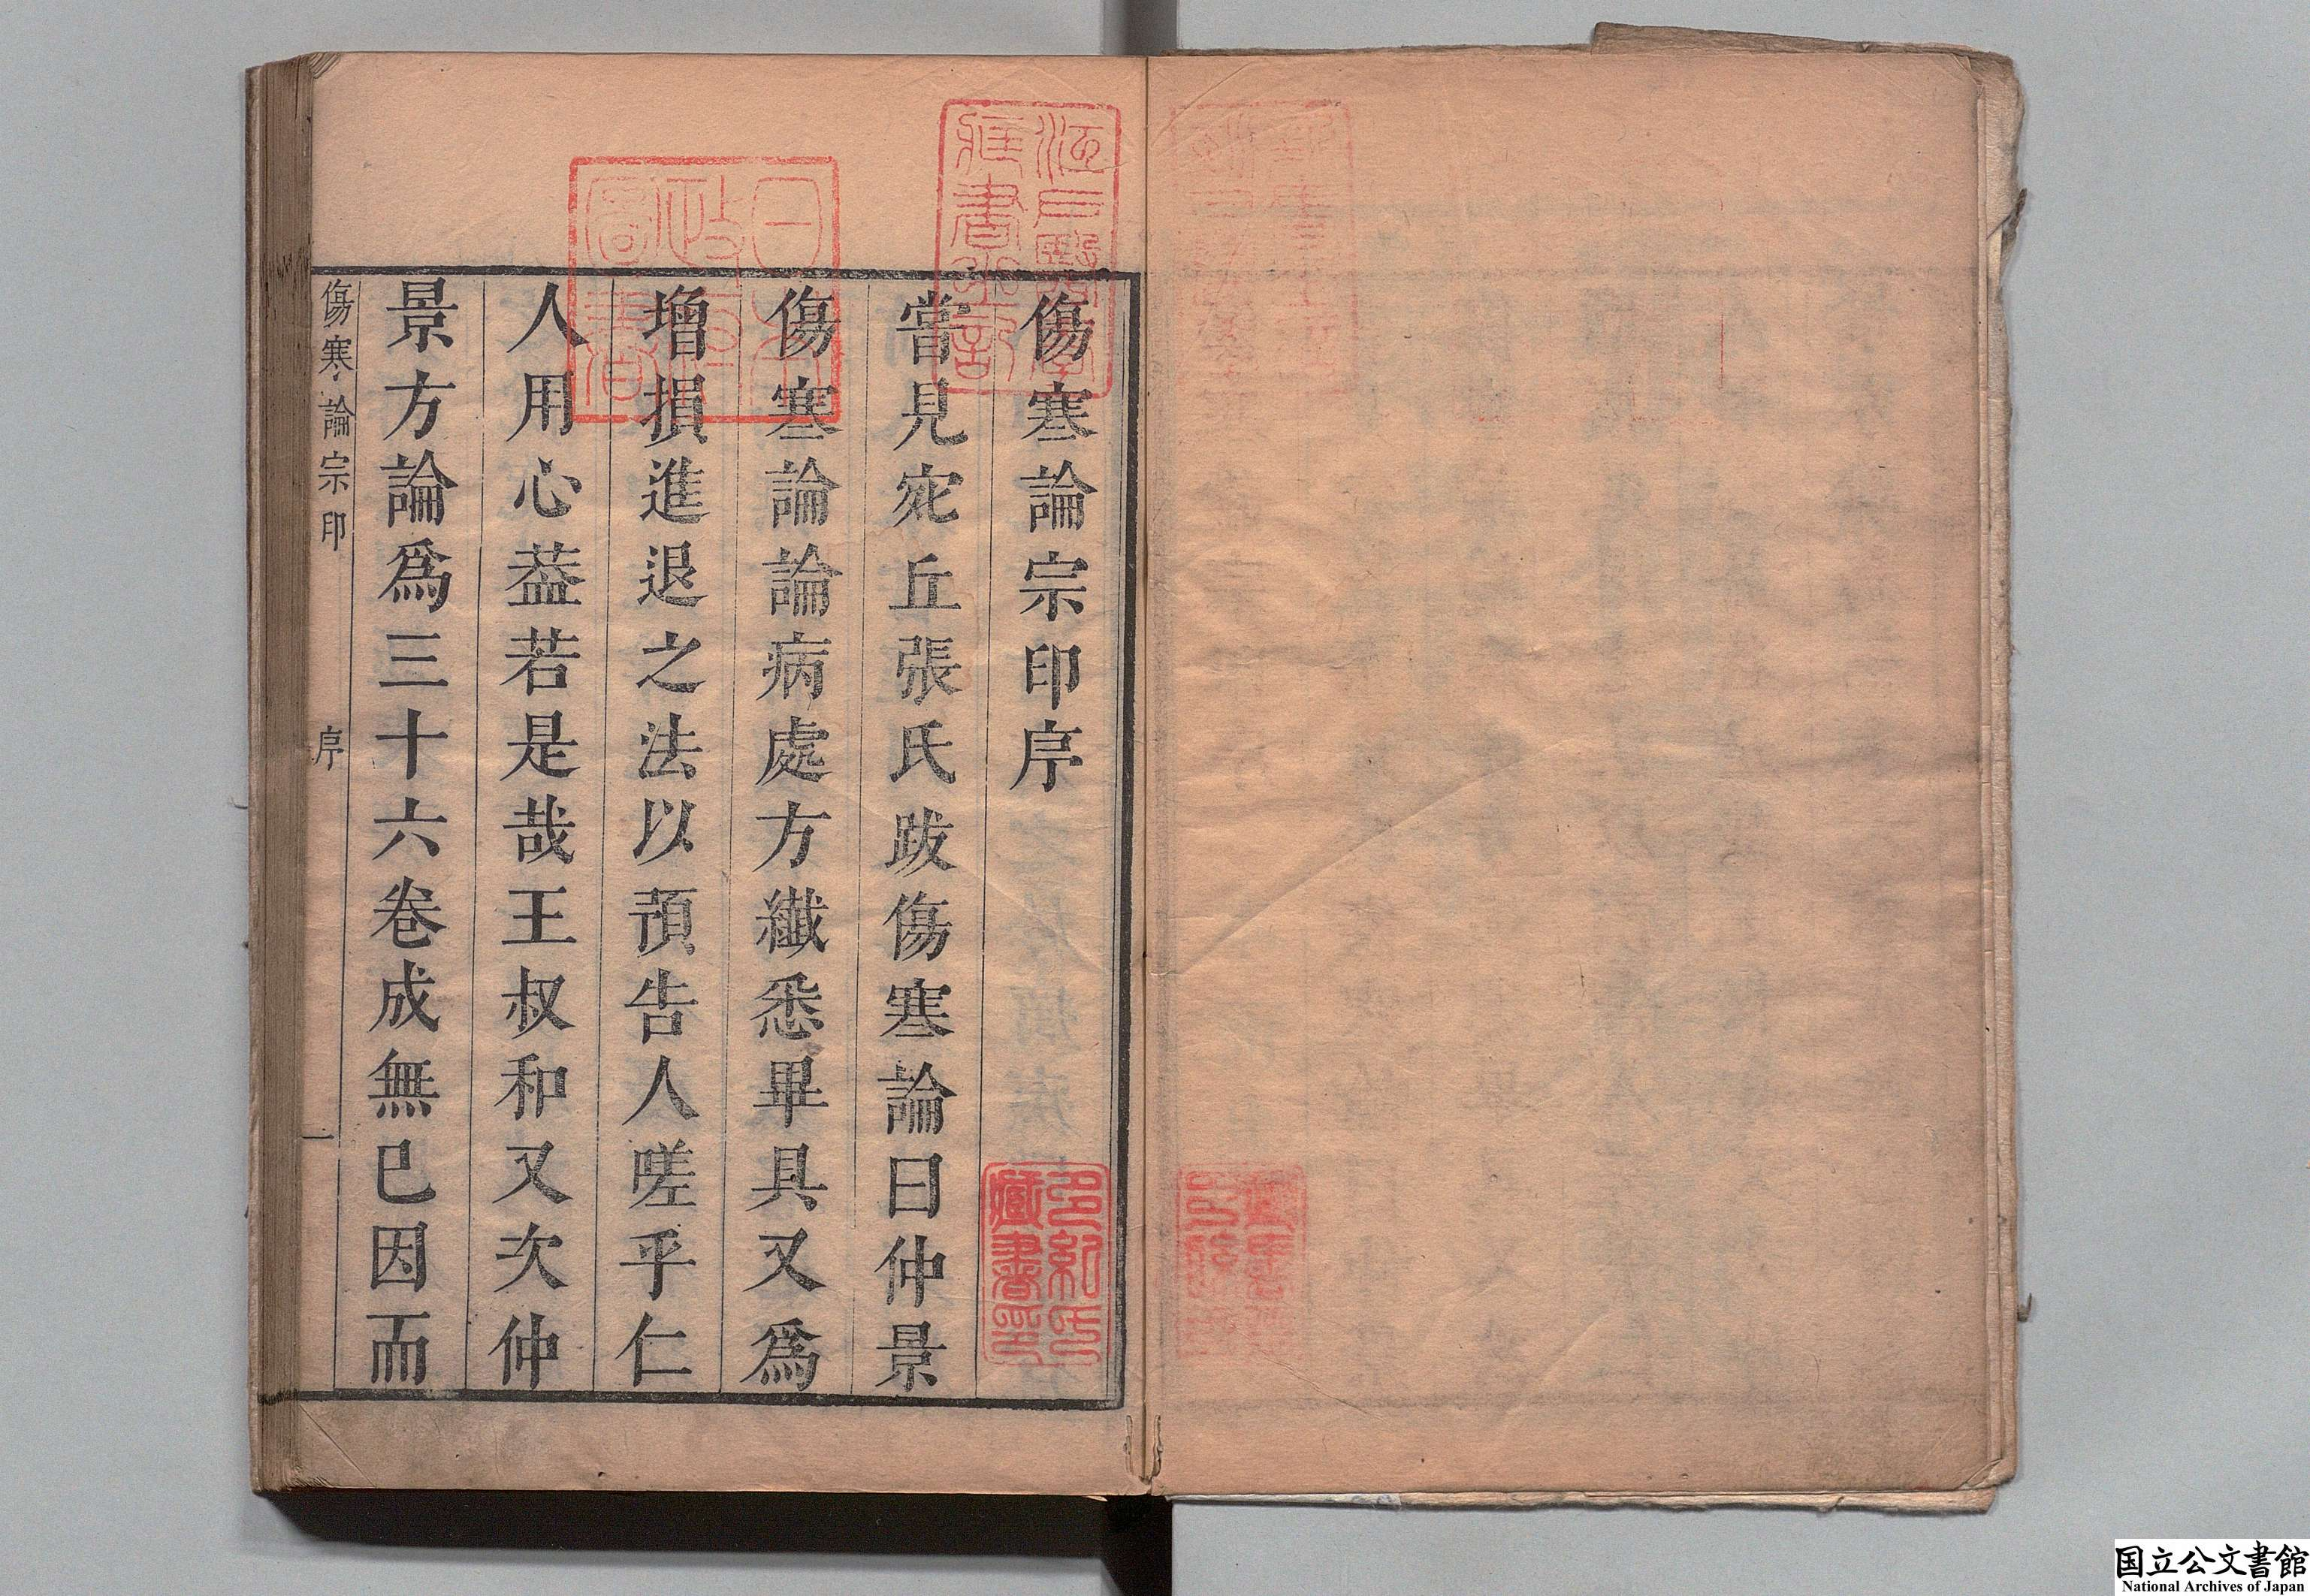 傷寒論宗印序
嘗見宛丘張氏跋傷寒論曰仲景
傷寒論論病處方纖悉畢具又爲
增損進退之法以預告人嗟乎仁
人用心葢若是哉王叔和又次仲
景方論爲三十六卷成無已因而
傷寒論宗印
序
一
江戸醫學
藏書之記
日本
政府
圖書
多紀氏
藏書印
国立公文書館
National Archives of Japan